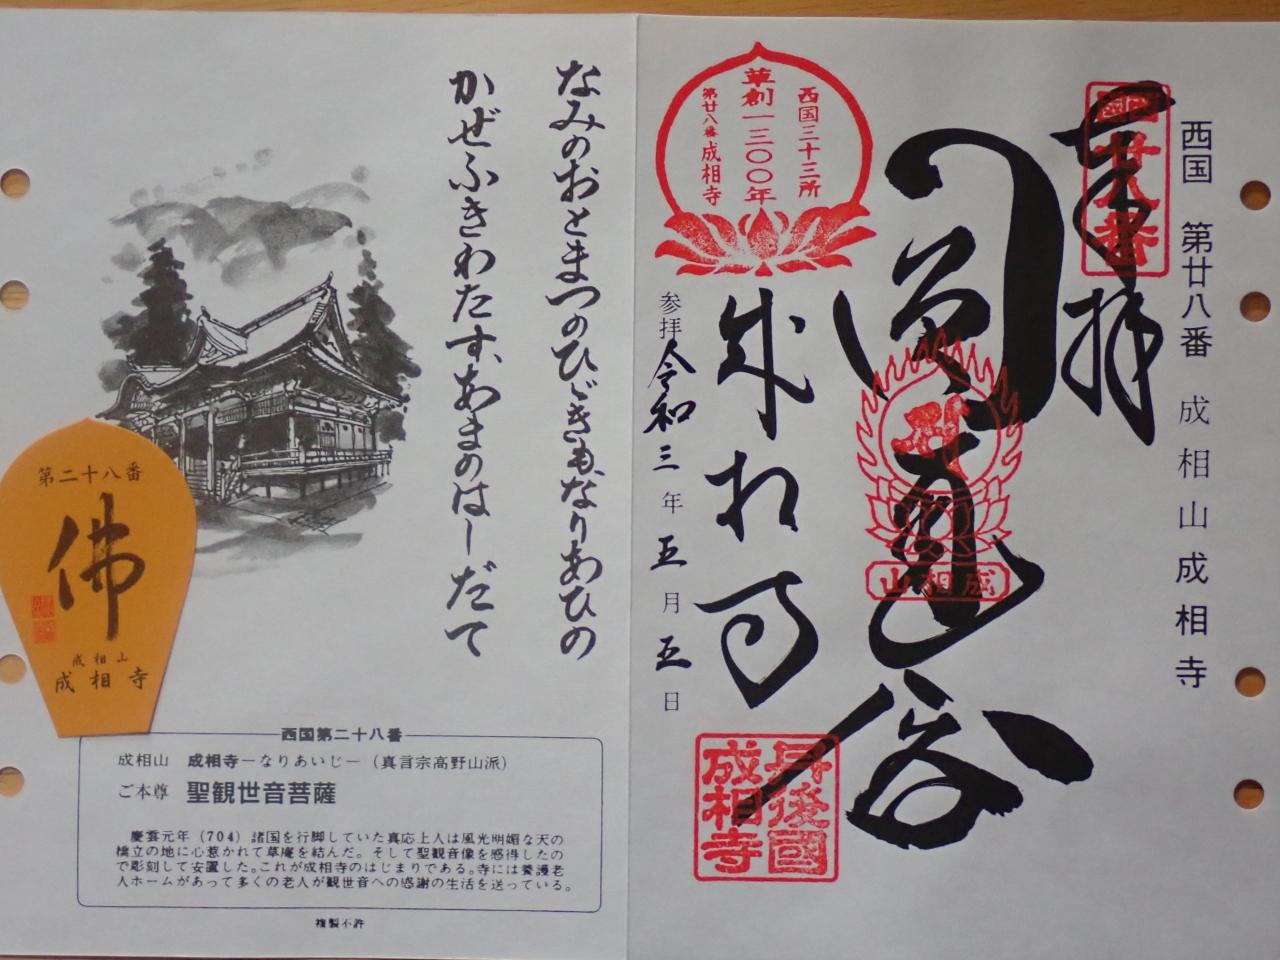 西国 第廿八番 成相山成相寺
奉拝
西国廿八番
圓通
成相山
成相寺
西国三十三所
草創一三〇〇年
第廿八番成相寺
参拝 令和三年五月五日
丹後國
成相寺
なみのおとまつのひゞきも、なりあひの
かぜふきわたす、あまのはしだて
第二十八番
佛
成相山
成相寺
西国第二十八番
成相山 成相寺―なりあいじ―(真言宗高野山派)
ご本尊 聖観世音菩薩
慶雲元年(704)諸国を行脚していた真応上人は風光明媚な天の
橋立の地に心惹かれて草庵を結んだ。そして聖観音像を感得したの
で彫刻して安置した。これが成相寺のはじまりである。寺には養護老
人ホームがあって多くの老人が観世音への感謝の生活を送っている。
複製不許